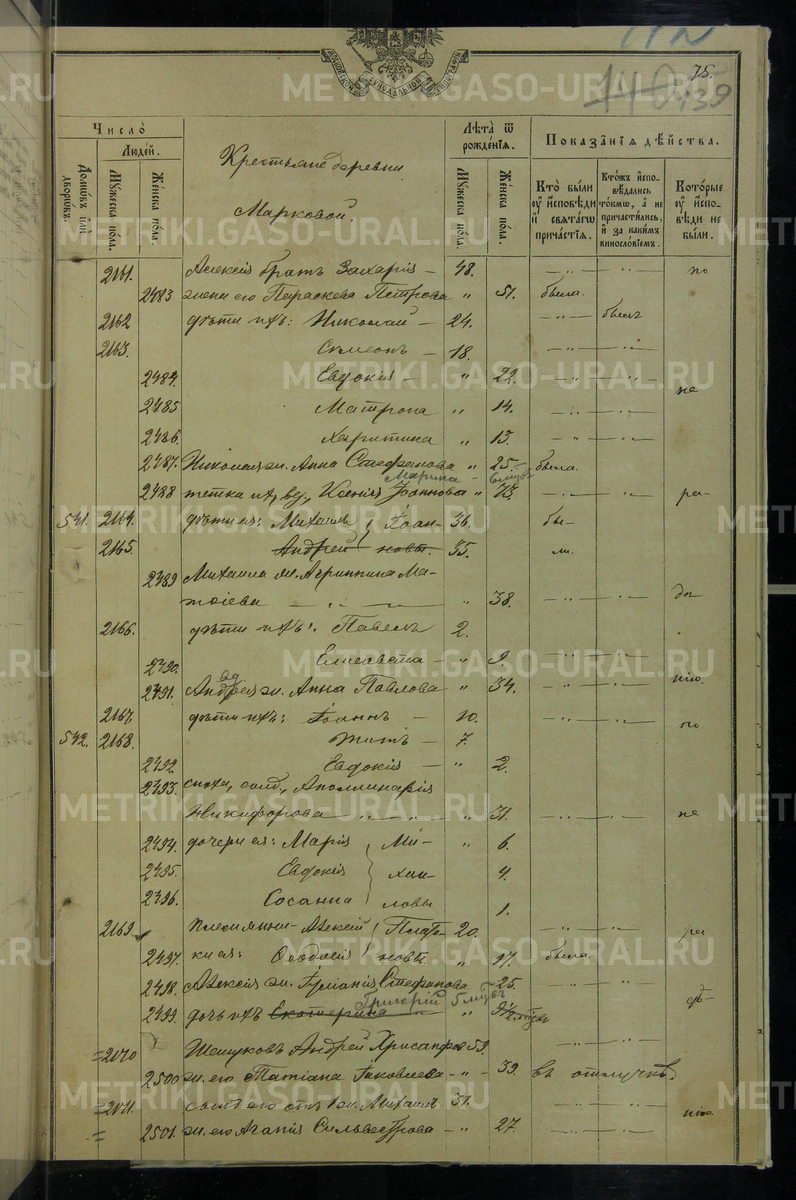 75.
140 139
Число̀
Людей.
Домѡвъ илѝ дворѡвъ.
Мꙋжеска по́ла.
Же́нска по́ла.
Крестьяне деревни
Марковой.
Лѣ́та ѿ рожде́нїѧ.
Мꙋжеска по́ла.
Же́нска по́ла.
Показа̑нїѧ дѣ́йства.
Кто̀ бы́ли ᲂу҆ и҆сповѣ́ди и҆ свѧта́гѡ прича́стїѧ.
Кто́жъ и҆сповѣ́дались то́кмѡ, а҆ не причасти́лись, и҆ за каки́мъ винослѡ́вїемъ.
Кото́рые ᲂу҆ и҆сповѣ́ди не бы́ли.
2161. Алексія братъ Захарія — 48. по
2483 жена его Параскева Петрова " 51. была.
2162 дѣти ихъ: Николай — 24. былъ
2163. Симеонъ — 18.
2484. Евдокія — " 22. не
2485 Матрона " 14.
2486. Харитина " 13.
2487. Николая ж. Анна Стефанова " 25. была.
Марина
2488 тетка их, вд., Ксенія Іоаннова " 73. ра-
541. 2164. дѣти ея: Михаилъ Іоан- 36. бы-
2165. Андрей новы. 35. ли.
2489 Михаила ж. Агриппина Ма-
тѳіева 38. дѣ
2166. дѣти ихъ: Павелъ 2.
2490. Елисавета — " 9. нію.
вд
2491. Андрея ж. Анна Павлова " 34.
2167. дѣти ихъ: Іоаннъ — 10. по
542. 2168. Титъ — 7.
2492. Евдокія — " 2.
2493. сноха, солд. Аполлинарія
Никифорова " 31. не
2494. дочери ея: Марія Ми- " 6.
2495. Евдокія хаи- 4.
2496. Сосанна ловы 1.
2169. племянни- Алексій Плато- 20. ра
2497. ки ея: Ѳеодосія новы " 17. была.
2498. Алексія ж. Іуліанія Стефанова 25.
Григорій 5 мѣсъ
2499. дочь ихъ Екатерина " дѣ-
2070 Шешуковъ Андрей Хрисанфов 59.
2500 ж. его Татіана Іаковлева — " 39. въ отлучкѣ.
2071. сынъ его отъ 1 ж. Михаилъ 31. нію.
2501. ж. его Агапія Сильвестрова — " 27.
METRIKI.GASO-URAL.RU